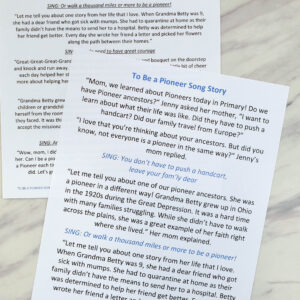 SING: Or walk a thousand miles or more to be a pioneer!
"Let me tell you about one story from her life that I love. When Grandma Betty was 9,
she had a dear friend who got sick with mumps. She had to quarantine at home as their
family didn't have the means to send her to a hospital. Betty was determined to help
her friend get better. Every day she wrote her friend a letter and picked her flowers
along the path between their homes."
SING: need to have great courage
"Great-Great-Great-Grand
and knock and run away.
each day helped her
more about helping he
"Grandma Betty grew
children or grandchild
herself from the room
they faced. It was
accept the missiona
SING: An
"Wow, mom, I did
her. Can I be a pio
To Be a Pioneer Song Story
"Mom, we learned about Pioneers today in Primary! Do we
have Pioneer ancestors?" Jenny asked her mother, "I want to
learn about what their life was like. Did they have to push a
handcart? Did our family travel from Europe?"
"I love that you're thinking about your ancestors. But did you
know, not everyone is a pioneer in the same way?" Jenny's
mom replied.
SING: You don't have to push a handcart,
leave your fam'ly dear
"Let me tell you about one of our pioneer ancestors. She was
a pioneer in a different way! Grandma Betty grew up in Ohio
in the 1920s during the Great Depression. It was a hard time
with many families struggling. While she didn't have to walk
across the plains, she was a great example of her faith right
where she lived." Her mom explained.
SING: Or walk a thousand miles or more to be a pioneer!
"Let me tell you about one story from her life that I love.
When Grandma Betty was 9, she had a dear friend who got
sick with mumps. She had to quarantine at home as their
family didn't have the means to send her to a hospital. Betty
was determined to help her friend get better. Every
wrote her friend a letter